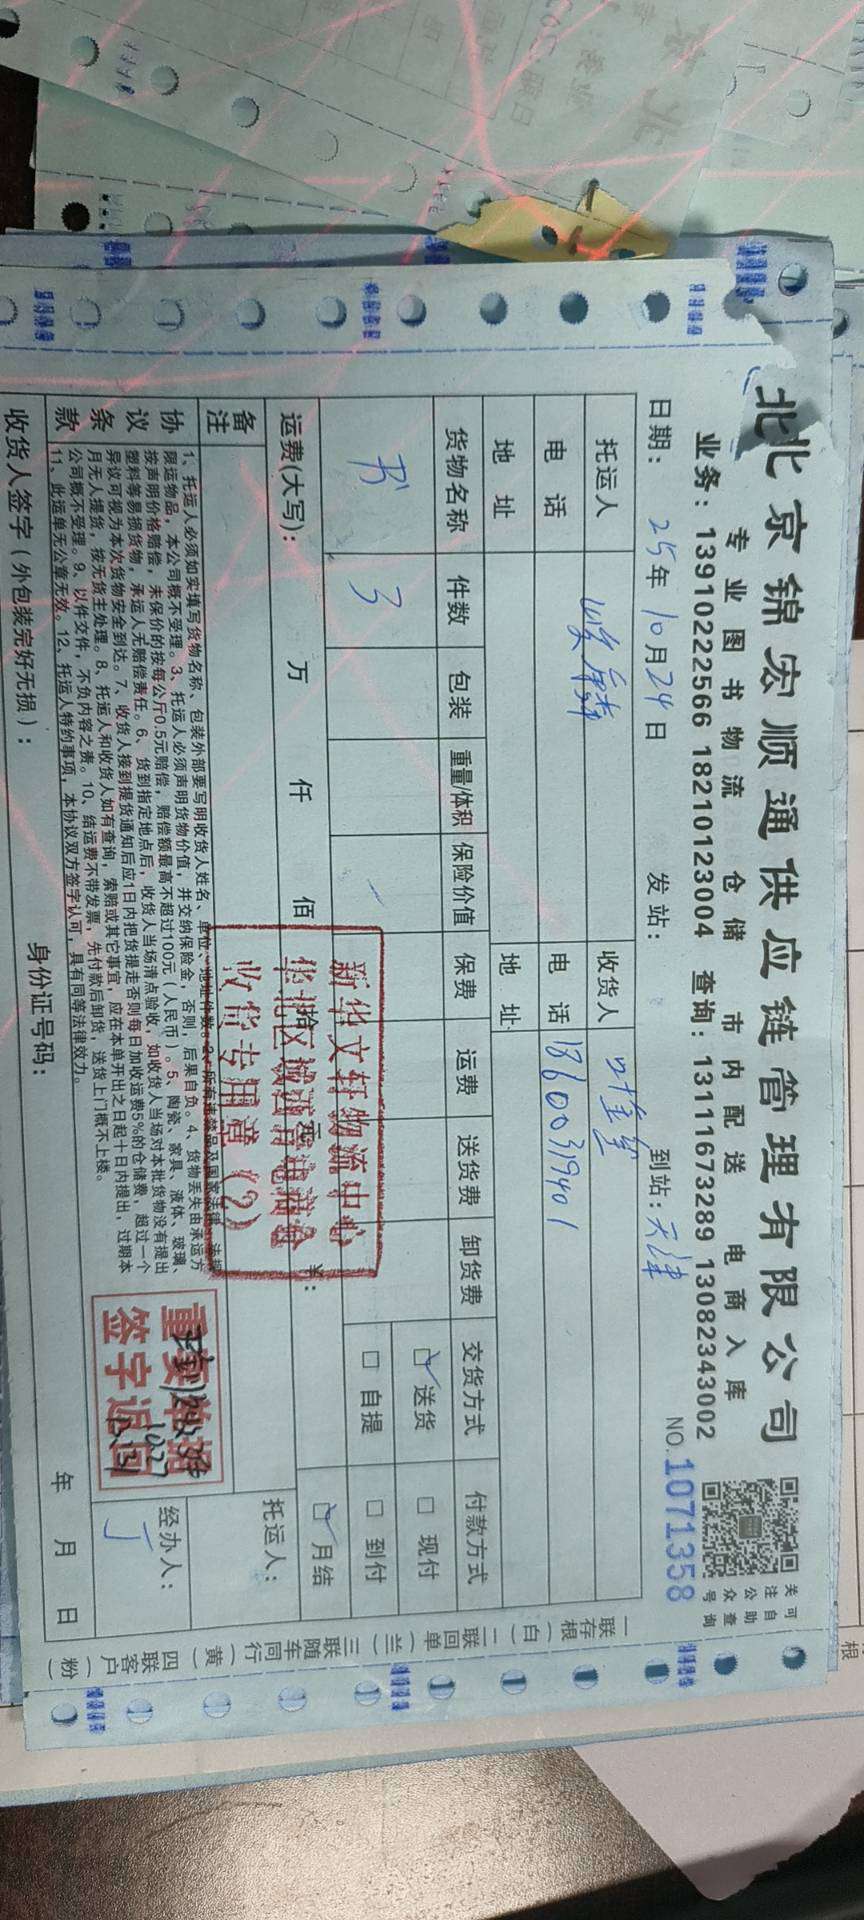 北京锦宏顺通供应链管理有限公司
专业图书物流 仓储 市内配送 电商入库
业务：13910222566 18210123004 查询：13111673289 13082343002
关注公众号
可自助查询
日期：25年10月24日 发站： 到站：天津 NO.1071358
托运人 收货人
电话 电话 13600319401
地址 地址
货物名称 件数 包装 重量/体积 保险价值 保费 运费 送货费 卸货费 交货方式 付款方式
书 3 ☑送货 □现付
□自提 □到付
运费(大写)： 万 仟 佰 拾 元 ¥： ☑月结
备注 托运人：
协议条款
1、托运人必须如实填写货物名称、包装外部要写明收货人姓名、单位、地址件数。2、所有违禁品及国家法律、法规
限运物品，本公司概不受理。3、托运人必须声明货物价值，并交纳保险金，否则，后果自负。4、货物丢失由承运方
按声明价格赔偿，未保价的按每公斤0.5元赔偿，赔偿额最高不超过100元（人民币）。5、陶瓷、家具、液体、玻璃、
塑料等易损货物，承运人无赔偿责任。6、货到指定地点后，收货人当场清点验收，如收货人当场对本批货物没有提出
异议可视为本次货物安全到达。7、收货人接到提货通知后应1日内把货提走否则每日加收运费5%的仓储费，超过一个
月无人提货，按无货主处理。8、托运人和收货人如有查询，索赔或其它事宜，应在本单开出之日起十日内提出，过期本
公司概不受理。9、以件交件，不负内容之责。10、结运费不带发票，先付款后卸货，送货上门概不上楼。
11、此运单无公章无效。12、托运人特约事项，本协议双方签字认可，具有同等法律效力。
经办人：
丁
收货人签字（外包装完好无损）： 身份证号码： 年 月 日
新华文轩物流中心
收货专用章（2）
重要单据
签字返回
10.27
一联存根（白）二联回单（兰）三联随车同行（黄）四联客户（粉）